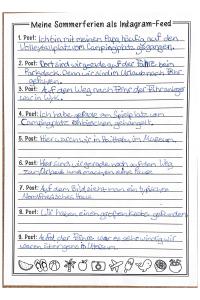 Meine Sommerferien als Indagram-Feed
1. Post: Ich bin mit meinen Papa häufig auf den
Volleyballplatz vom Campingplatz gegangen.
2. Post: Dort sind wir gerade auf der Fähre beim
Parkdeck. Denn wir sind im Urlaub nach Föhr
gefahren.
3. Post: Auf dem Weg nach Föhr der Fähranleger
war in Wyk.
4. Post: Ich habe gerade am Spielplatz vom
Campingplatz ein bisschen gehangelt.
5. Post: Hier waren wir in im Museum.
6. Post: Hier sind wir gerade noch auf dem Weg
zum Urlaub und machen eine Pause
7. Post: Auf dem Bild sieht man ein typisches
Nordfriesisches Haus
8. Post: Wir haben einen großen Krebs gefunden
9. Post: Auf der Fähre war es sehr windig wir
waren übrigens in Utersum